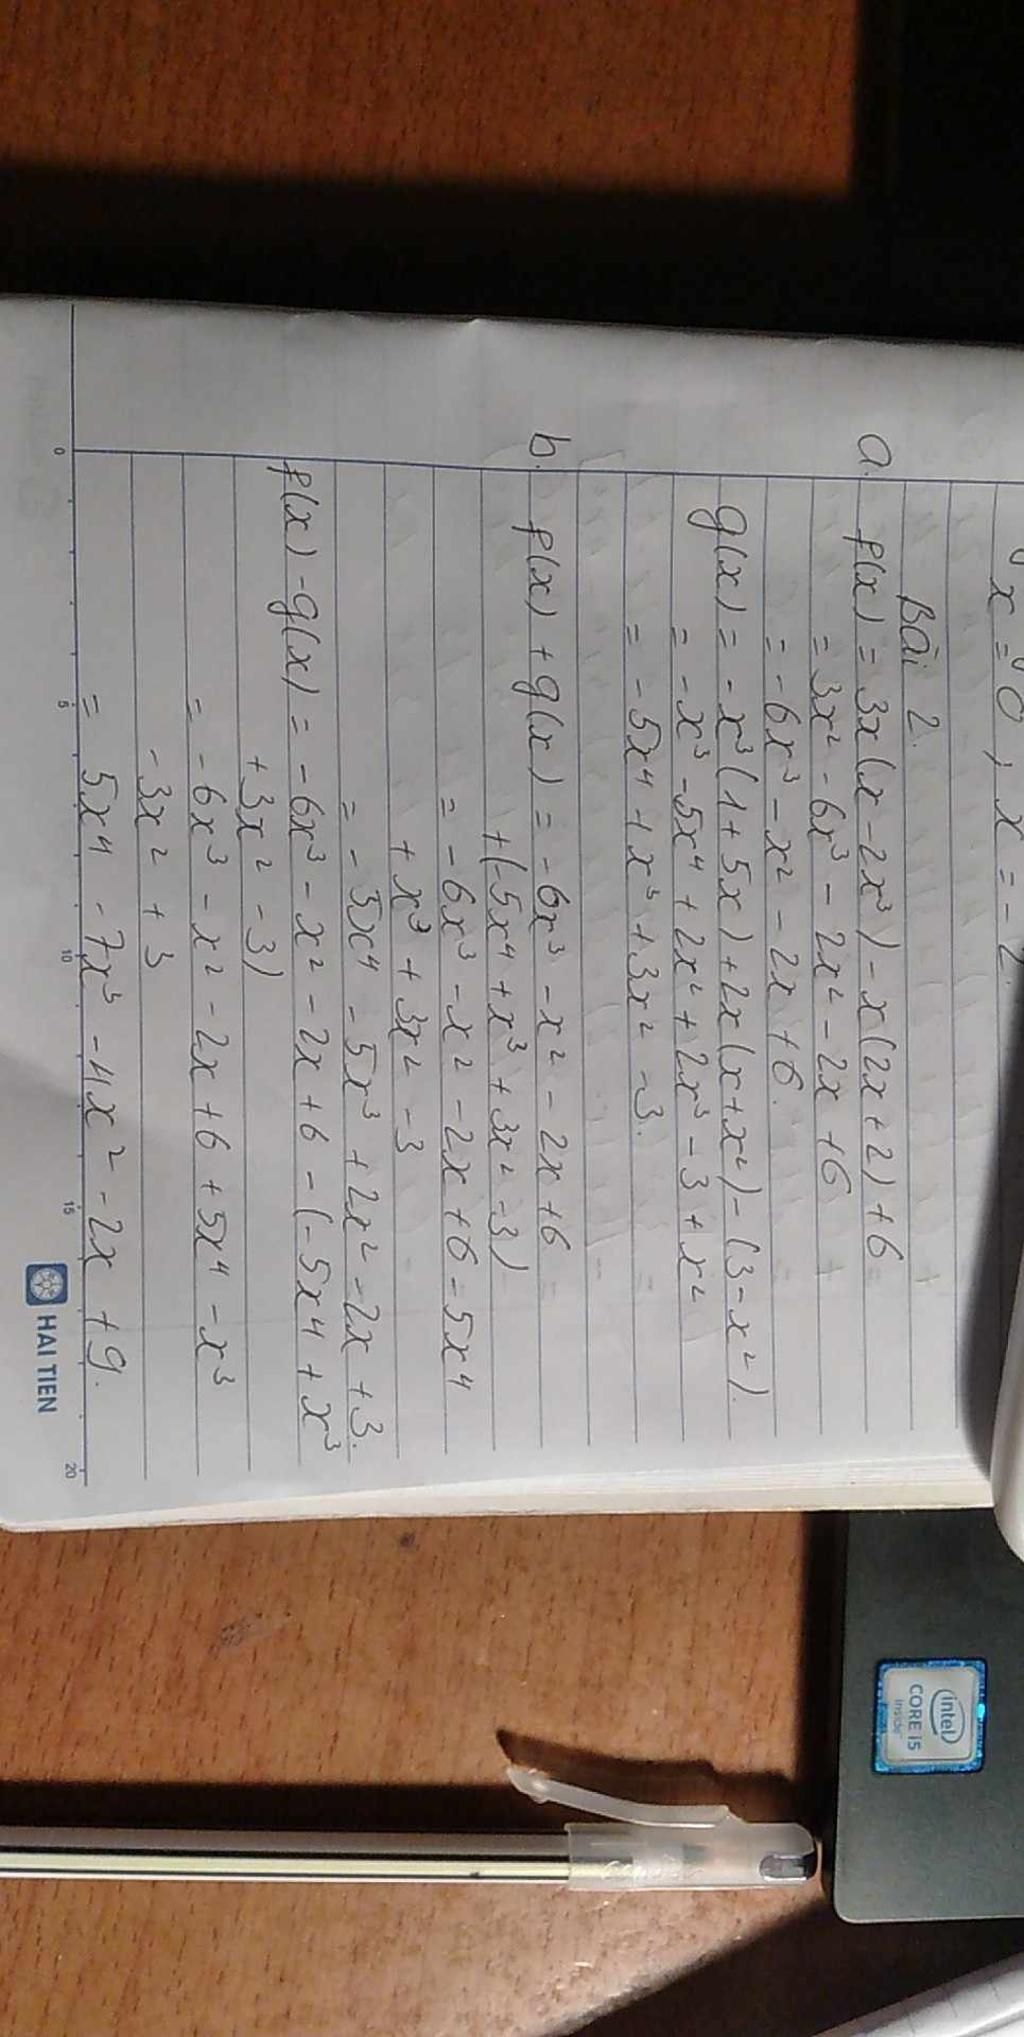 x = 0, x = -2.
Bài 2.
a. f(x) = 3x(x - 2x³) - x(2x + 2) + 6
= 3x² - 6x³ - 2x² - 2x + 6
= - 6x³ - x² - 2x + 6.
g(x) = - x³(1 + 5x) + 2x(x + x²) - (3 - x²).
= - x³ - 5x⁴ + 2x² + 2x³ - 3 + x²
= - 5x⁴ + x³ + 3x² - 3.
b. f(x) + g(x) = - 6x³ - x² - 2x + 6
+ (-5x⁴ + x³ + 3x² - 3)
= - 6x³ - x² - 2x + 6 - 5x⁴
+ x³ + 3x² - 3
= - 5x⁴ - 5x³ + 2x² - 2x + 3.
f(x) - g(x) = - 6x³ - x² - 2x + 6 - (-5x⁴ + x³
+ 3x² - 3)
= - 6x³ - x² - 2x + 6 + 5x⁴ - x³
- 3x² + 3
= 5x⁴ - 7x³ - 4x² - 2x + 9.
0 5 10 15 20
HAI TIEN
intel
CORE i5
inside